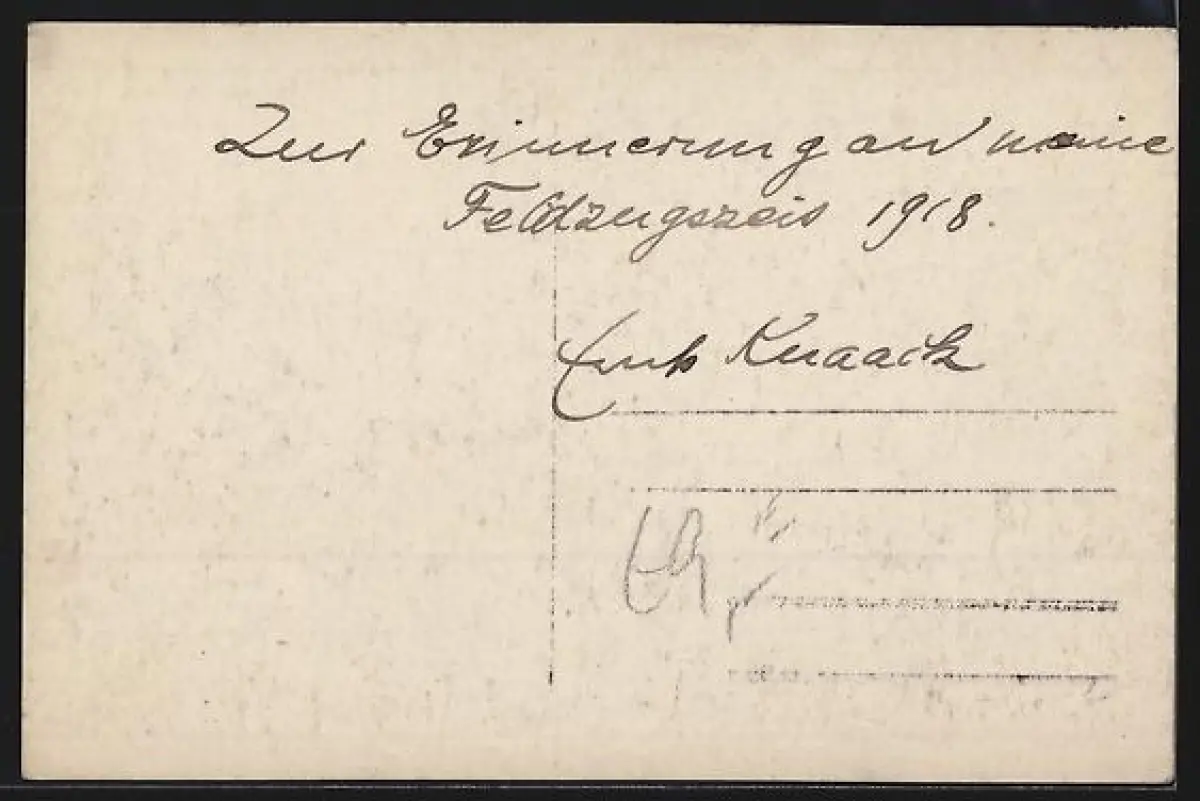 Zur Erinnerung an meine
Feldzugszeit 1918.
Knaack